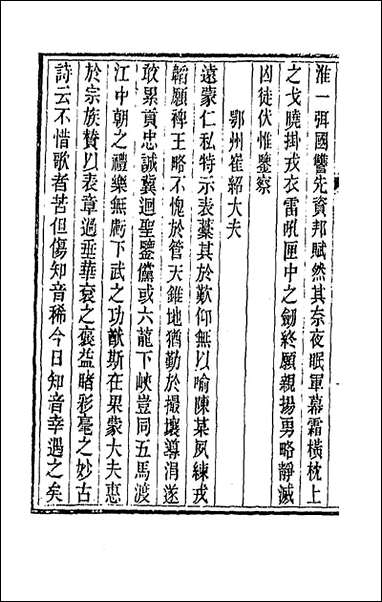 淮一弭國讐先資邦賦然其奈夜眠軍幕霜橫枕上
之戈曉掛戎衣雷吼匣中之劒終願親揚勇略靜滅
凶徒伏惟鑒察
鄂州崔紹大夫
遠蒙仁私特示表藁某於歎仰無以喻陳某夙練戎
韜願稗王略不愧於管天錐地猶勤於撮壤導涓遂
敢累貢忠誠冀迴聖鑒儻或六龍下峽豈同五馬渡
江中朝之禮樂無虧下武之功猷斯在果蒙大夫惠
於宗族賛以表章過垂華衮之褒益睹彩毫之妙古
詩云不惜歌者苦但傷知音稀今日知音幸遇之矣